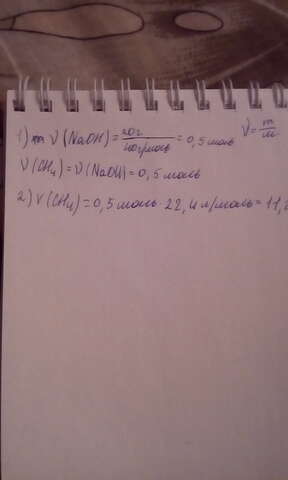 1) m ν (NaOH) = 20г / 40г/моль = 0,5 моль ν = m/m
ν (CH₄) = ν (NaOH) = 0,5 моль
2) V (CH₄) = 0,5 моль · 22,4 л/моль = 11,2